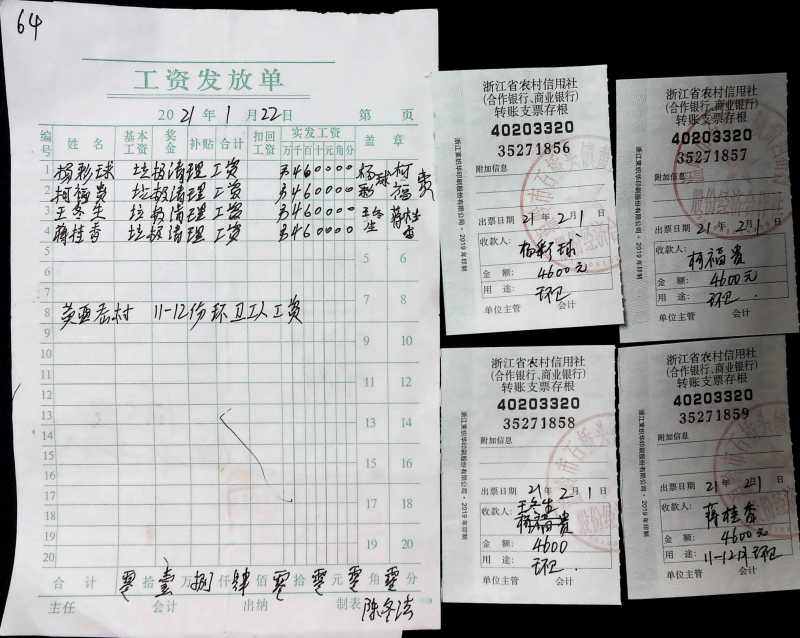 64
工资发放单
2021年1月22日 第 页
编号 姓名 基本工资 奖金 补贴 合计 扣回工资 实发工资 万千百十元角分 盖章
1 杨彩球 垃圾清理工资 460000 杨彩球 柯福贵
2 柯福贵 垃圾清理工资 460000
3 王冬生 垃圾清理工资 460000 王冬生 蒋桂香
4 蒋桂香 垃圾清理工资 460000
5 5 6
6
7 7 8
8 岙村 11-12份环卫工人工资
9 9 10
10
11 11 12
12
13 13 14
14
15 15 16
16
17 17 18
18
19 19 20
20
合计 零拾壹万捌仟肆佰零拾零元零角零分
主任 会计 出纳 制表 陈冬法
浙江省农村信用社
(合作银行、商业银行)
转账支票存根
40203320
35271856
附加信息
出票日期 21年2月1日
收款人:
杨彩球
金额: 4600元
用途: 环卫
单位主管 会计
浙江省农村信用社
(合作银行、商业银行)
转账支票存根
40203320
35271857
附加信息
出票日期 21年2月1日
收款人:
柯福贵
金额: 4600元
用途: 环卫.
单位主管 会计
浙江省农村信用社
(合作银行、商业银行)
转账支票存根
40203320
35271858
附加信息
出票日期 21年2月1日
王冬生
收款人: 柯福贵
金额: 4600
用途: 环卫
单位主管 会计
浙江省农村信用社
(合作银行、商业银行)
转账支票存根
40203320
35271859
附加信息
出票日期 21年2月1日
收款人: 蒋桂香
金额: 4600元
用途: 11-12月环卫
单位主管 会计